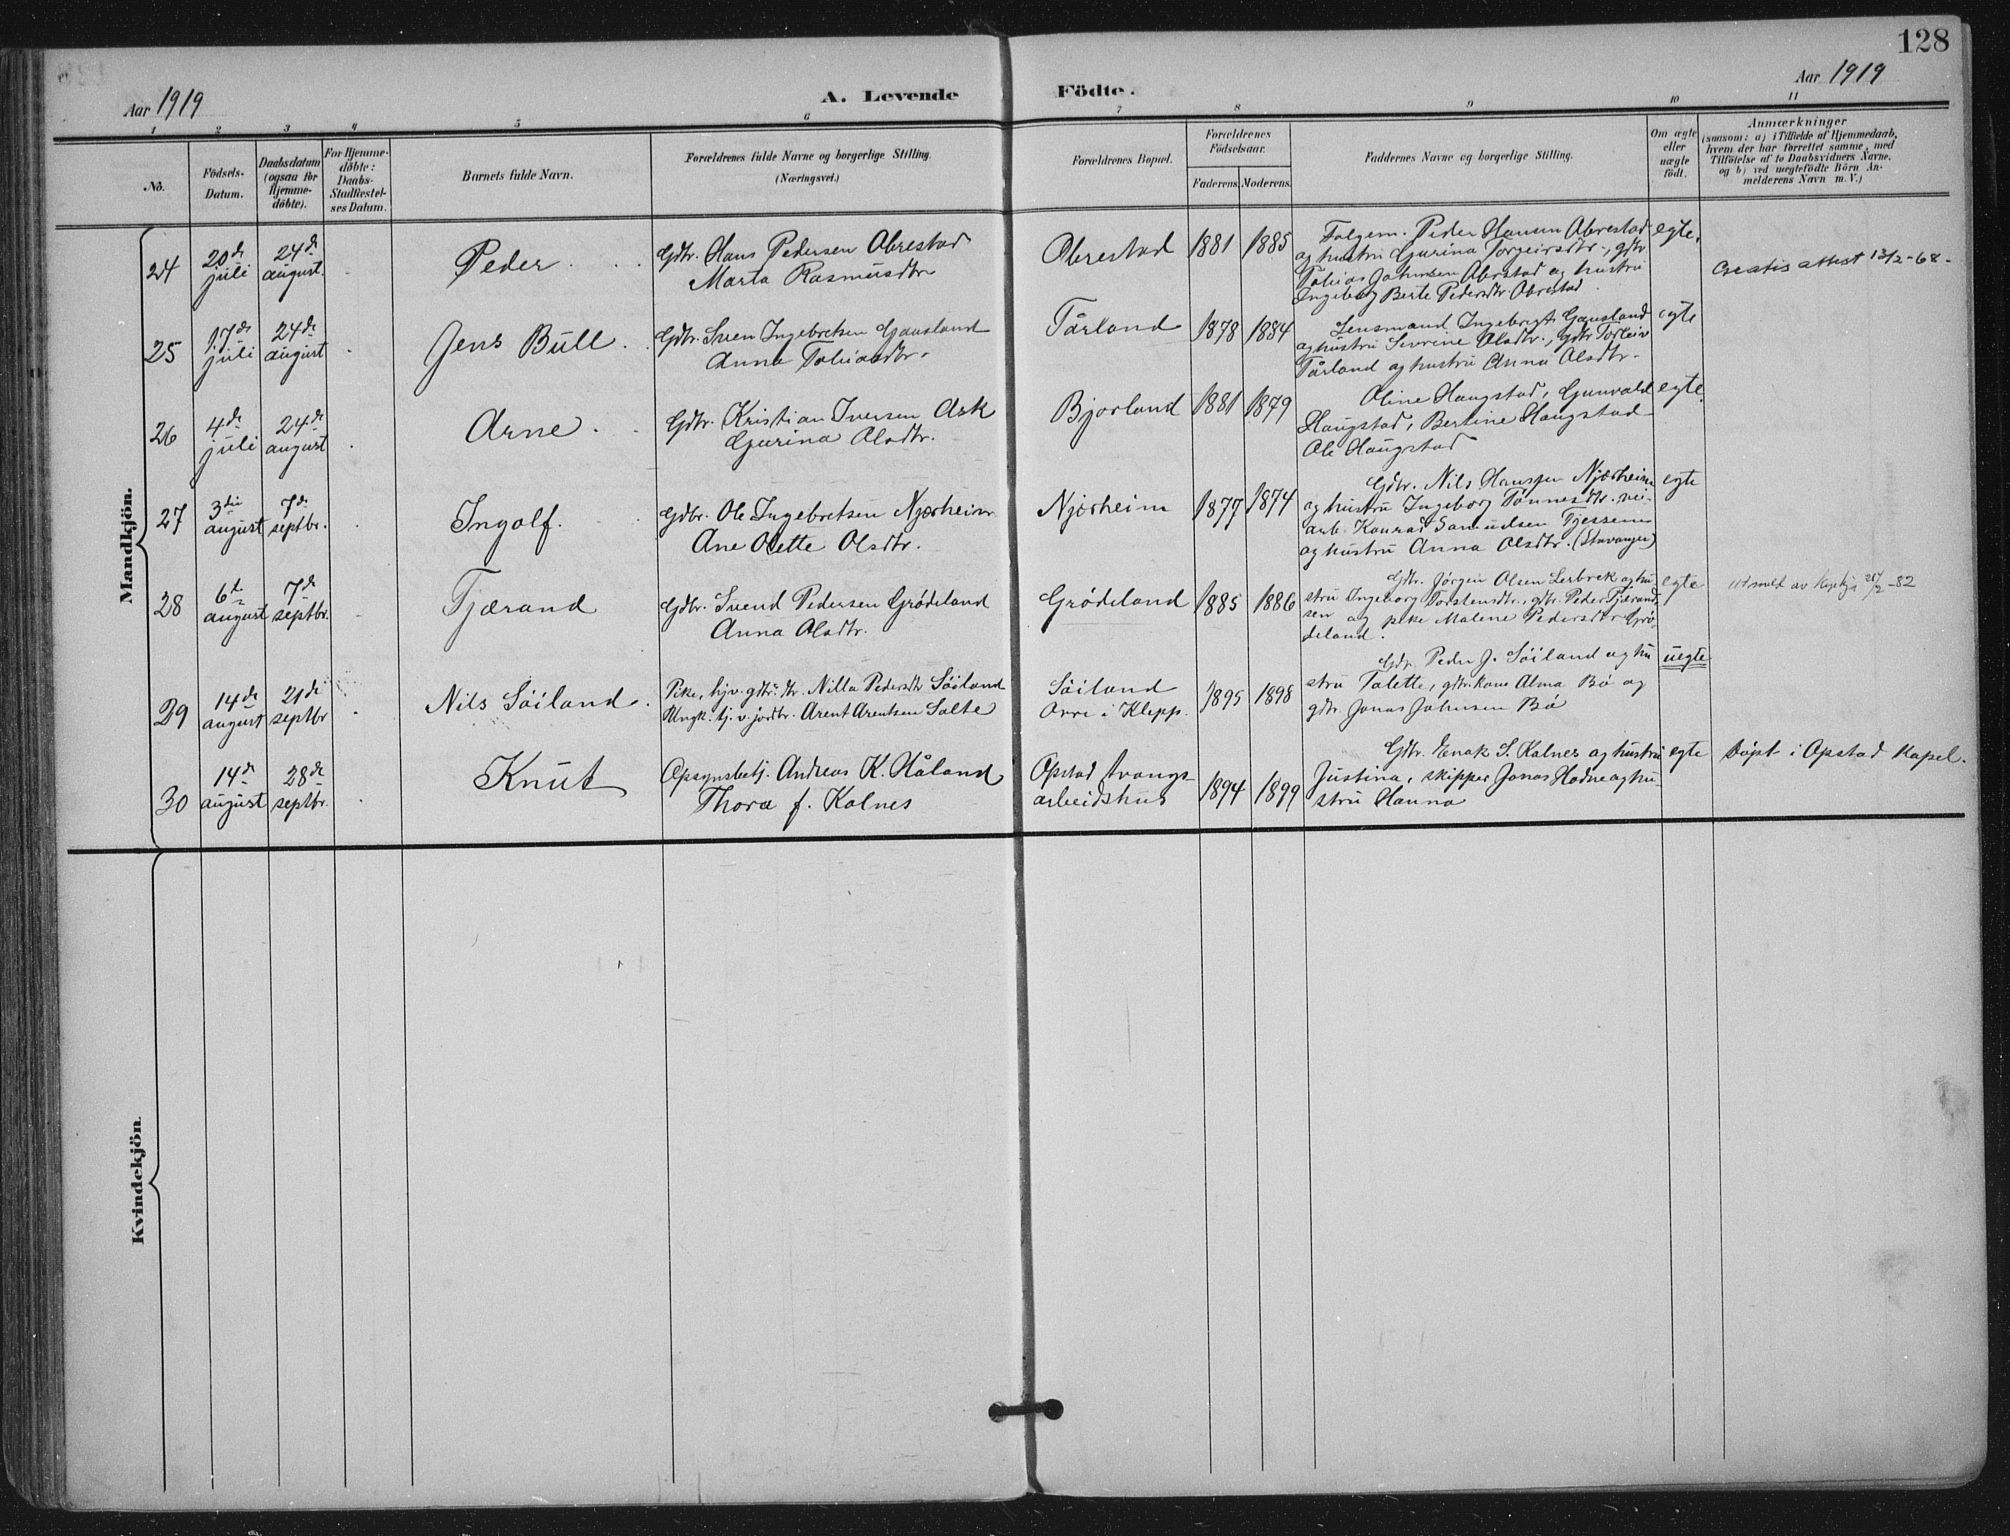 128
Aar 1919
A. Levende Födte.
Aar 1919
1 2 3 4 5 6 7 8 9 10 11
No.
Födsels-
Datum.
Daabsdatum
(ogsaa for
Hjemme-
döbte).
For Hjemme-
döbte:
Daabs-
Stadfæstel-
ses Datum.
Barnets fulde Navn.
Forældrenes fulde Navne og borgerlige Stilling.
(Næringsvei.)
Forældrenes Bopæl.
Forældrenes
Födselsaar.
Faderens. Moderens.
Faddernes Navne og borgerlige Stilling.
Om ægte
eller
uægte
födt.
Anmærkninger
(saasom: a) i Tilfælde af Hjemmedaab,
hvem der har forrettet samme, med
Tilföielse af to Daabsvidners Navne,
og b) ved uægtefödte Börn An-
melderens Navn m. V.)
Mandkjön.
24
20de
juli
24de
august.
Peder
Gdbr. Hans Pedersen Obrestad
Marta Rasmusdtr
Obrestad
1881 1885
Folgem. Peder Hansen Obrestad
og hustru Gurina Torgeirsdtr., gdbr
Tobias Johnsen Obrestad og hustru
Ingeborg Berte Pedersdtr Obrestad.
egte.
Gratis attest 13/2-68-
25
17de
juli
24de
august
Jens Bull
Gdbr. Sven Ingebretsen Gausland
Anna Tobiasdtr.
Tårland
1878 1884
Lensmand Ingebrigt Gausland
og hustru Sevrine Olsdtr., gdbr Torleiv
Tårland og hustru Anna Olsdtr.
egte
26
4de
juli
24de
august
Arne
Gdbr. Kristian Iversen Ask
Gurina Olsdtr.
Bjorland
1881 1879
Oline Haugstad, Gunvald
Haugstad, Bertine Haugstad
Ole Haugstad
egte.
27
3die
august
7de
septbr.
Ingolf.
Gdbr. Ole Ingebretsen Njærheim
Ane Olette Olsdtr.
Njærheim
1877 1874
Gdbr. Nils Hanssen Njærheim
og hustru Ingeborg Tønnesdtr. vei-
arb. Konrad Samuelsen Tjessem
og hustru Anna Olsdtr. (Stavanger)
egte
28
6te
august
7de
septbr.
Tjærand
Gdbr. Svend Pedersen Grødeland
Anna Olsdtr.
Grødeland
1885 1886
Gdbr. Jørgen Olsen Lerbrek og hu-
stru Ingeborg Torstensdtr., gdbr. Peder Tjærand-
sen og pike Malene Pedersdtr Grø-
deland.
egte
utmeld av
-82
29
14de
august
21de
septbr
Nils Søiland.
Pike, hjv. gdbr. dtr. Nilla Pedersdtr Søiland
Ungk. tj. v. jordbr. Arent Arentsen Salte
Søiland
Orre i Klepp.
1895 1898
Gdbr. Peder J. Søiland og hu
stru Talette, gdbr. kone Alma Bø og
gdbr. Jonas Johnsen Bø
uegte
30
14de
august
28de
septbr.
Knut
Opsynsbetj. Andreas K. Håland
Thora f. Kalnes
Opstad tvangs-
arbeidshus
1894 1899
Gdbr. Enok S. Kalnes og hustru
Justina, skipper Jonas Hodne og hu-
stru Hanna
egte
Døpt i Opstad Kapel.
Kvindekjön.